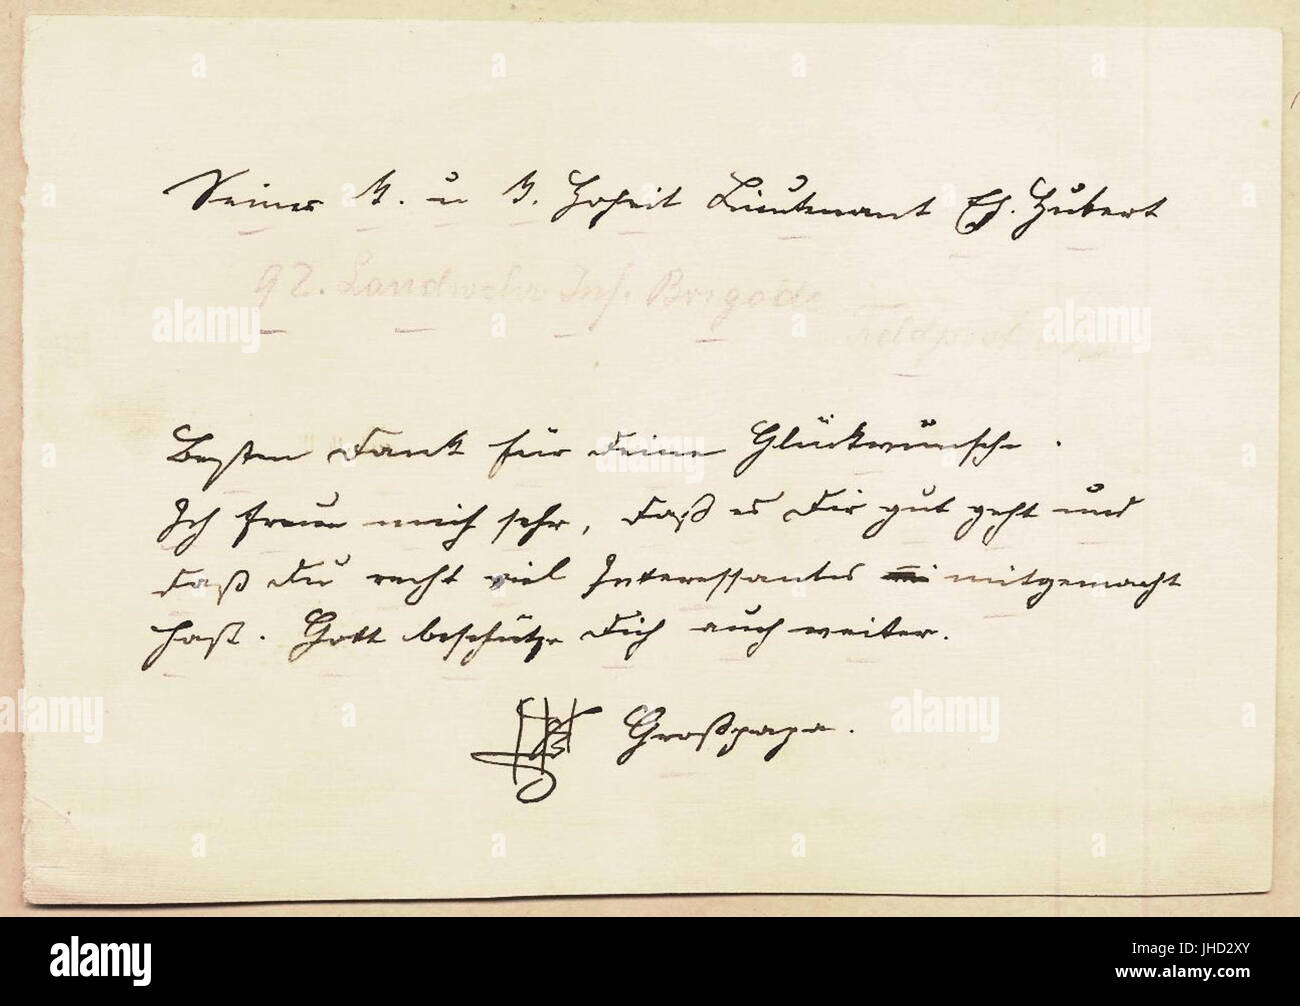 Seiner K. u K. Hoheit Lieutenant Eh. Hubert
92. Landwehr Inf. Brigade
Feldpost
Besten Dank für Deine Glückwünsche.
Ich freue mich sehr, daß es Dir gut geht und
daß Du recht viel Interessantes mitgemacht
hast. Gott beschütze Dich auch weiter.
Großpapa.
alamy
Image ID: JHD2XY
www.alamy.com